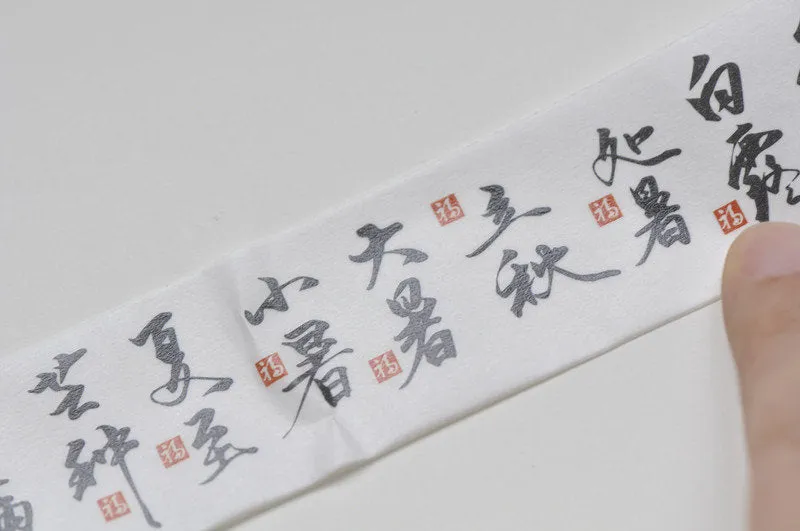 芒种
福
夏至
福
小暑
福
大暑
福
立秋
福
如暑
福
白露
福